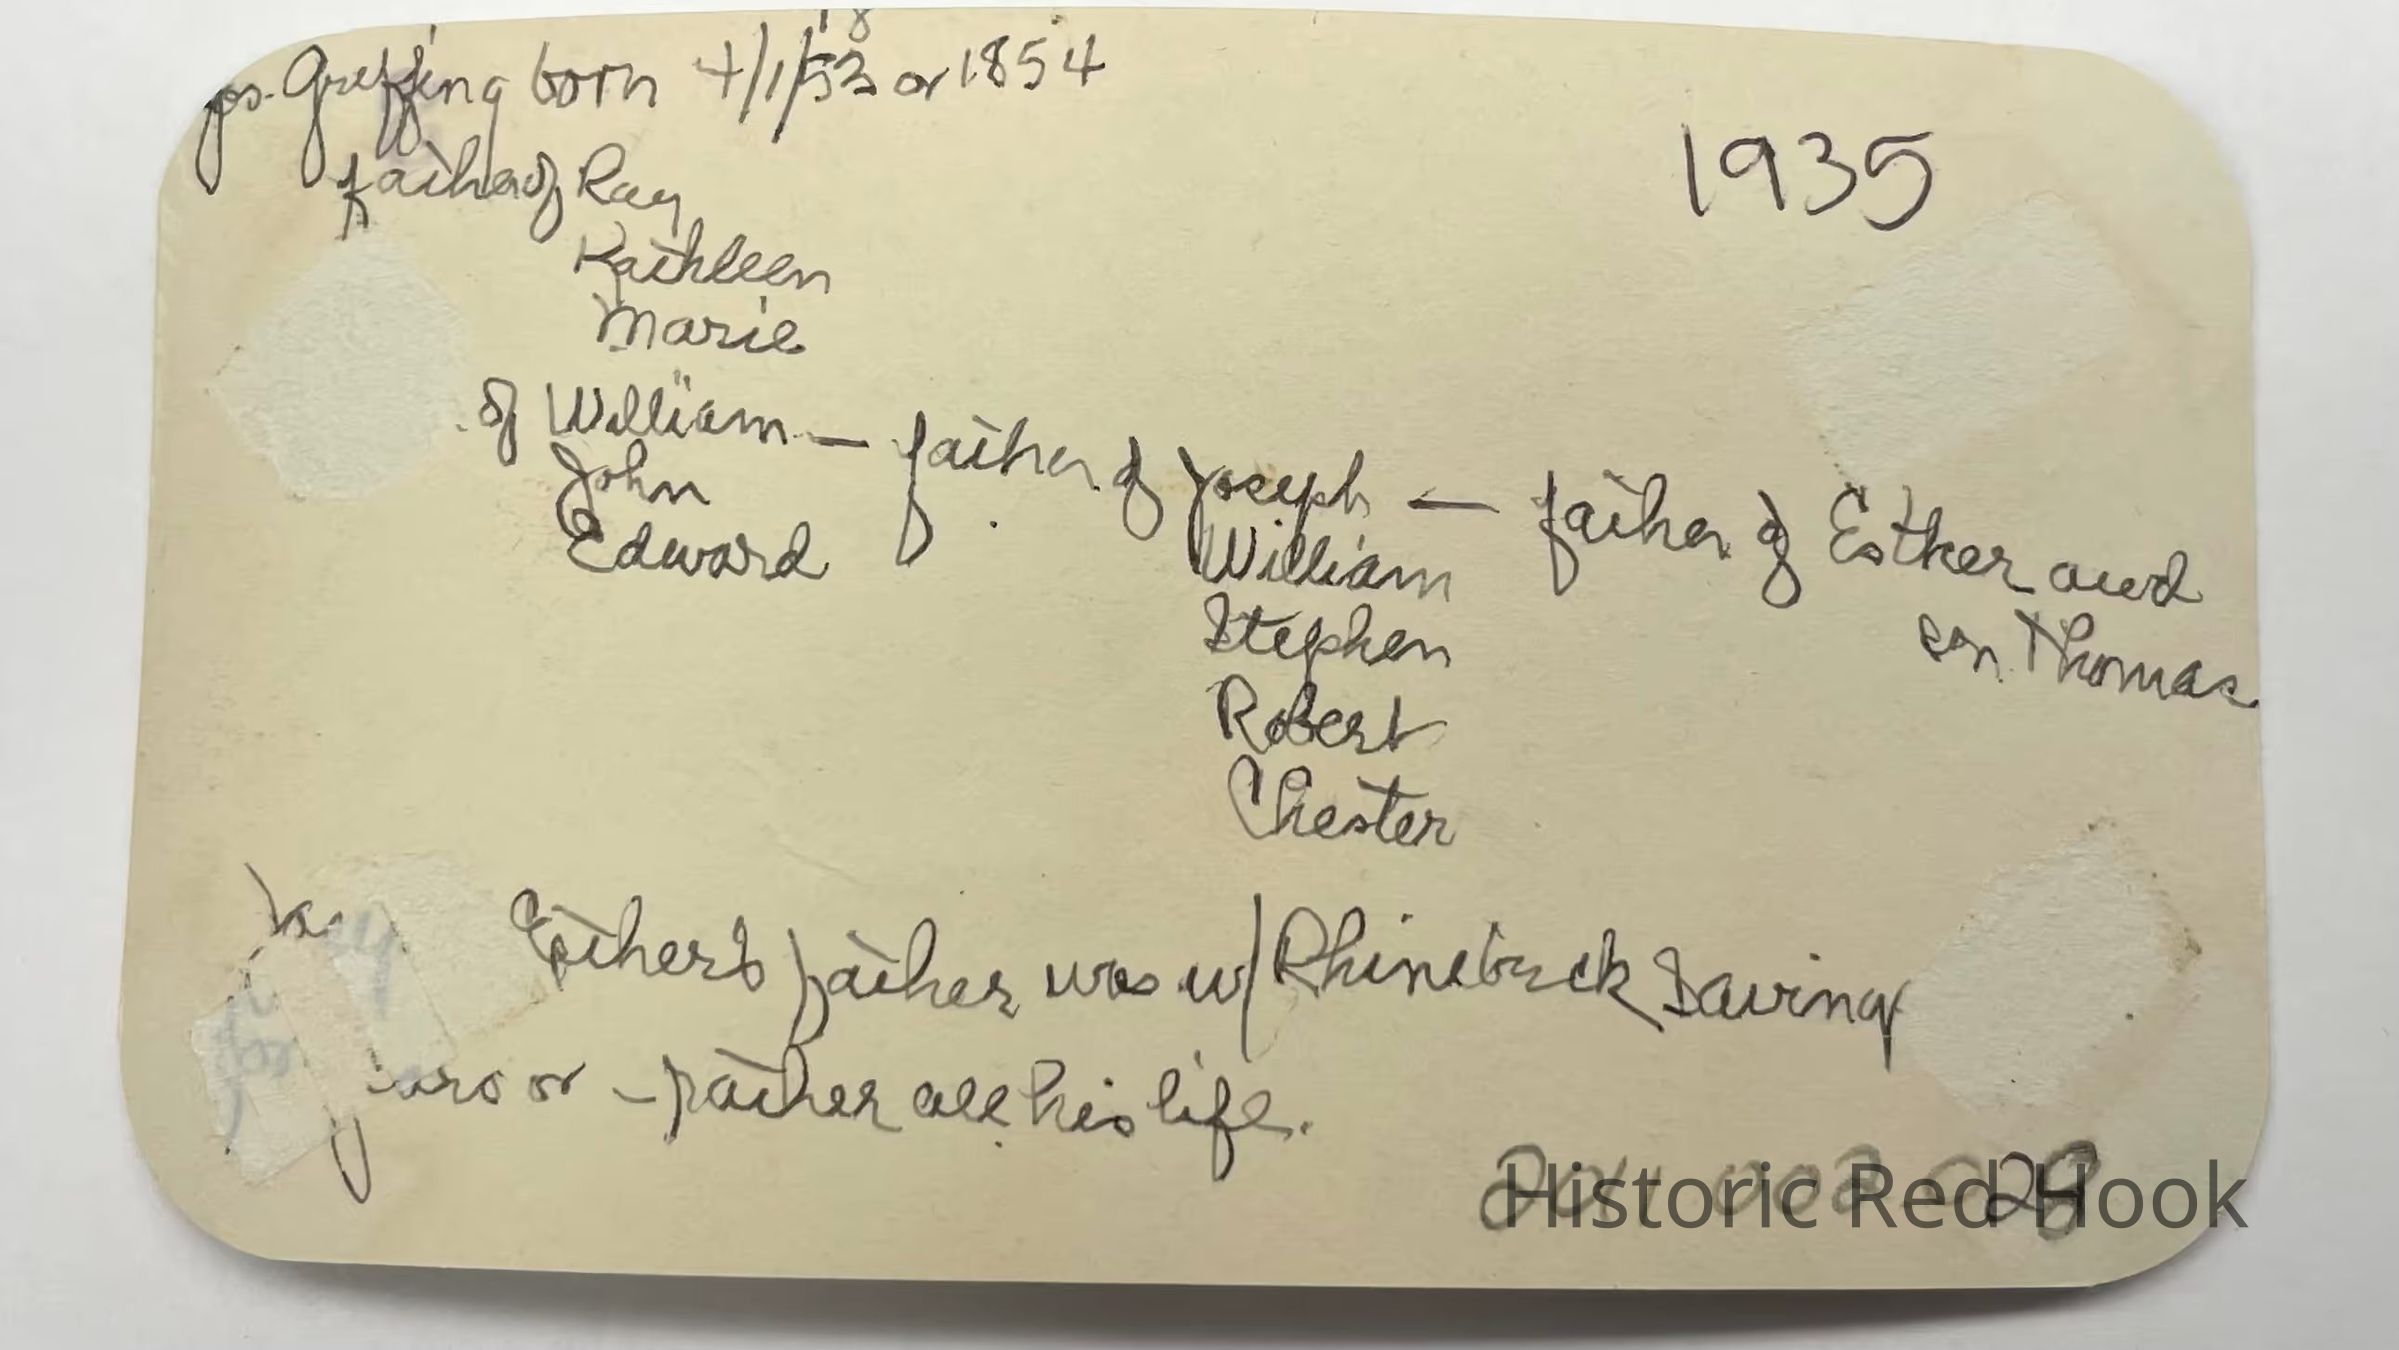 jos. Griffing born 4/1/1853 or 1854
1935
father of Ray
Kathleen
Marie
of William — father of Joseph — father of Esther and
John William son Thomas
Edward Stephen
Robert
Chester
Esther's father was w/ Rhinebeck Saving
or - rather all his life.
2011.002.028
Historic Red Hook